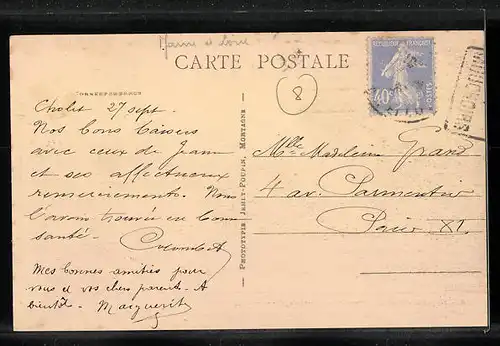 Maine et Loire
CARTE POSTALE
8
RÉPUBLIQUE FRANÇAISE
40c
POSTES
CORRESPONDANCE
Cholet 27 sept.
Nos bons baisers
avec ceux de Jeanne
et ses affectueux
remerciements. Nous
l'avons trouvée en bonne
santé.
Mes bonnes amitiés pour
vous et vos chers parents. A
bientôt. Marguerite
PHOTOTYPIE JEHLY-POUPIN, MORTAGNE
Mlle Madeleine Grand
4 av. Parmentier
Paris XI.